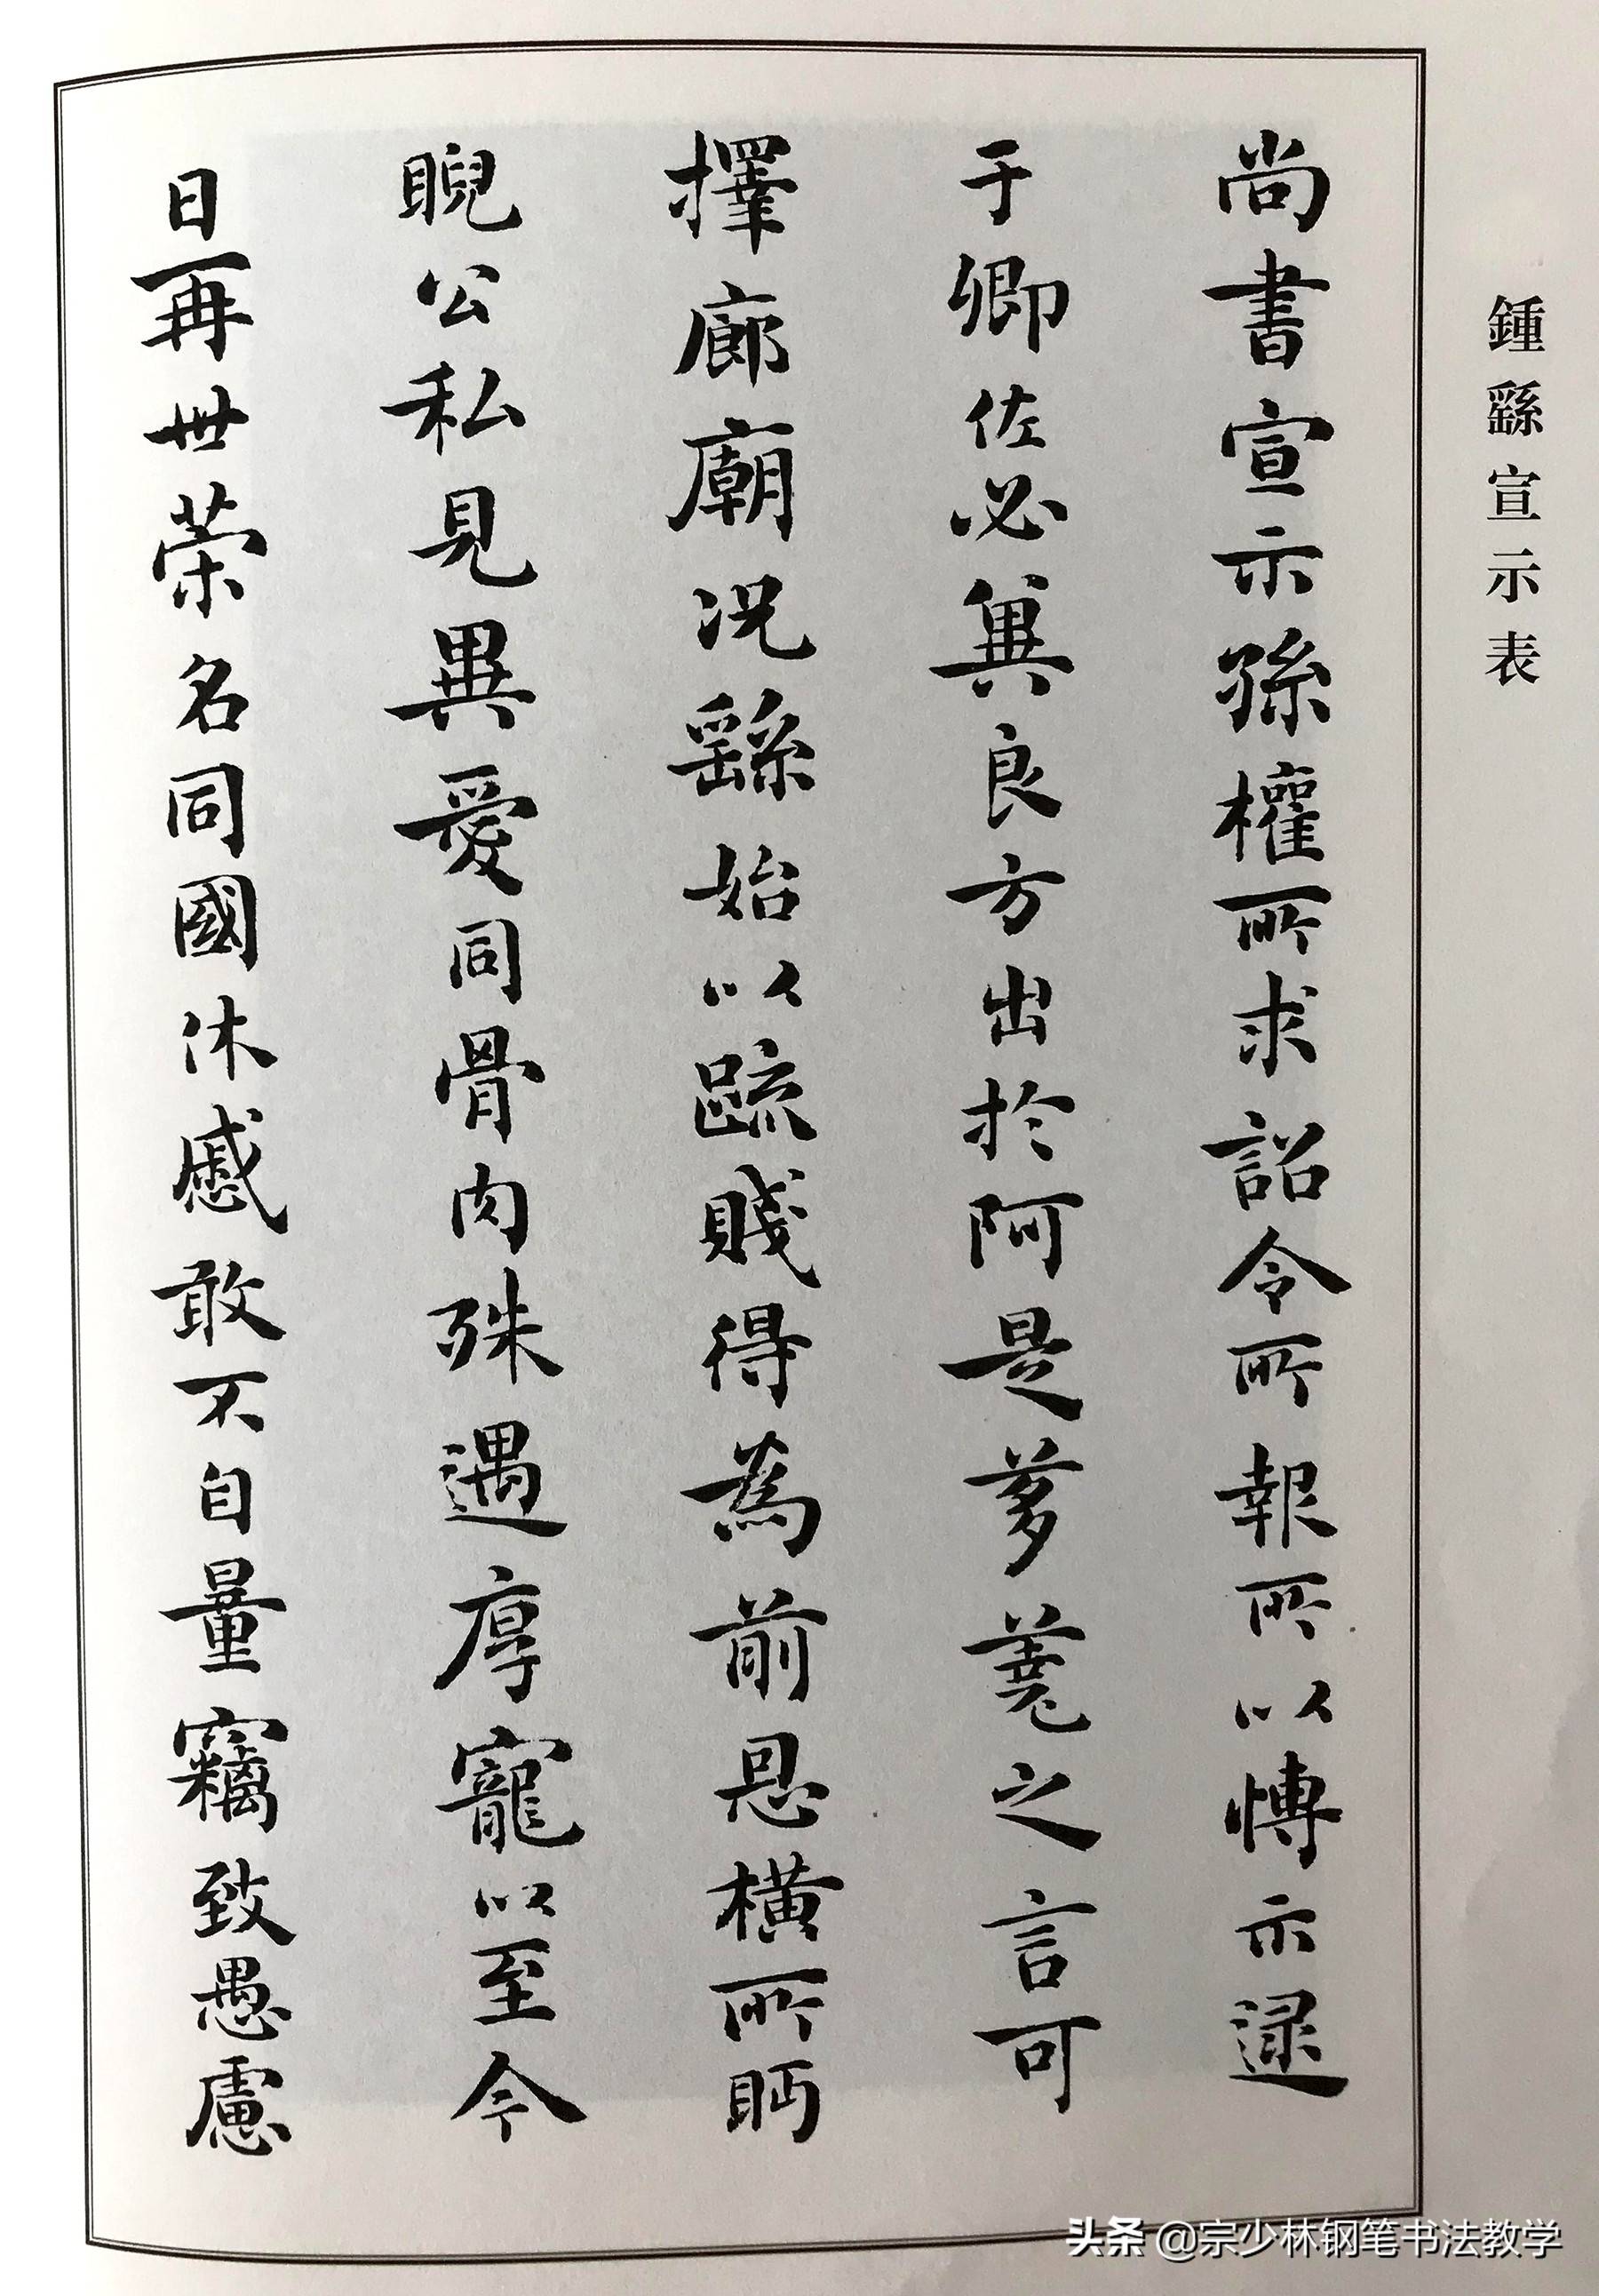 鍾繇宣示表
尚書宣示孫權所求詔令所報所以博示逮
于卿佐必冀良方出於阿是芻蕘之言可
擇廊廟況繇始以疏賤得為前恩橫所眄
睨公私見異愛同骨肉殊遇厚寵以至今
日再世榮名同國休慼敢不自量竊致愚慮
头条 @宗少林钢笔书法教学